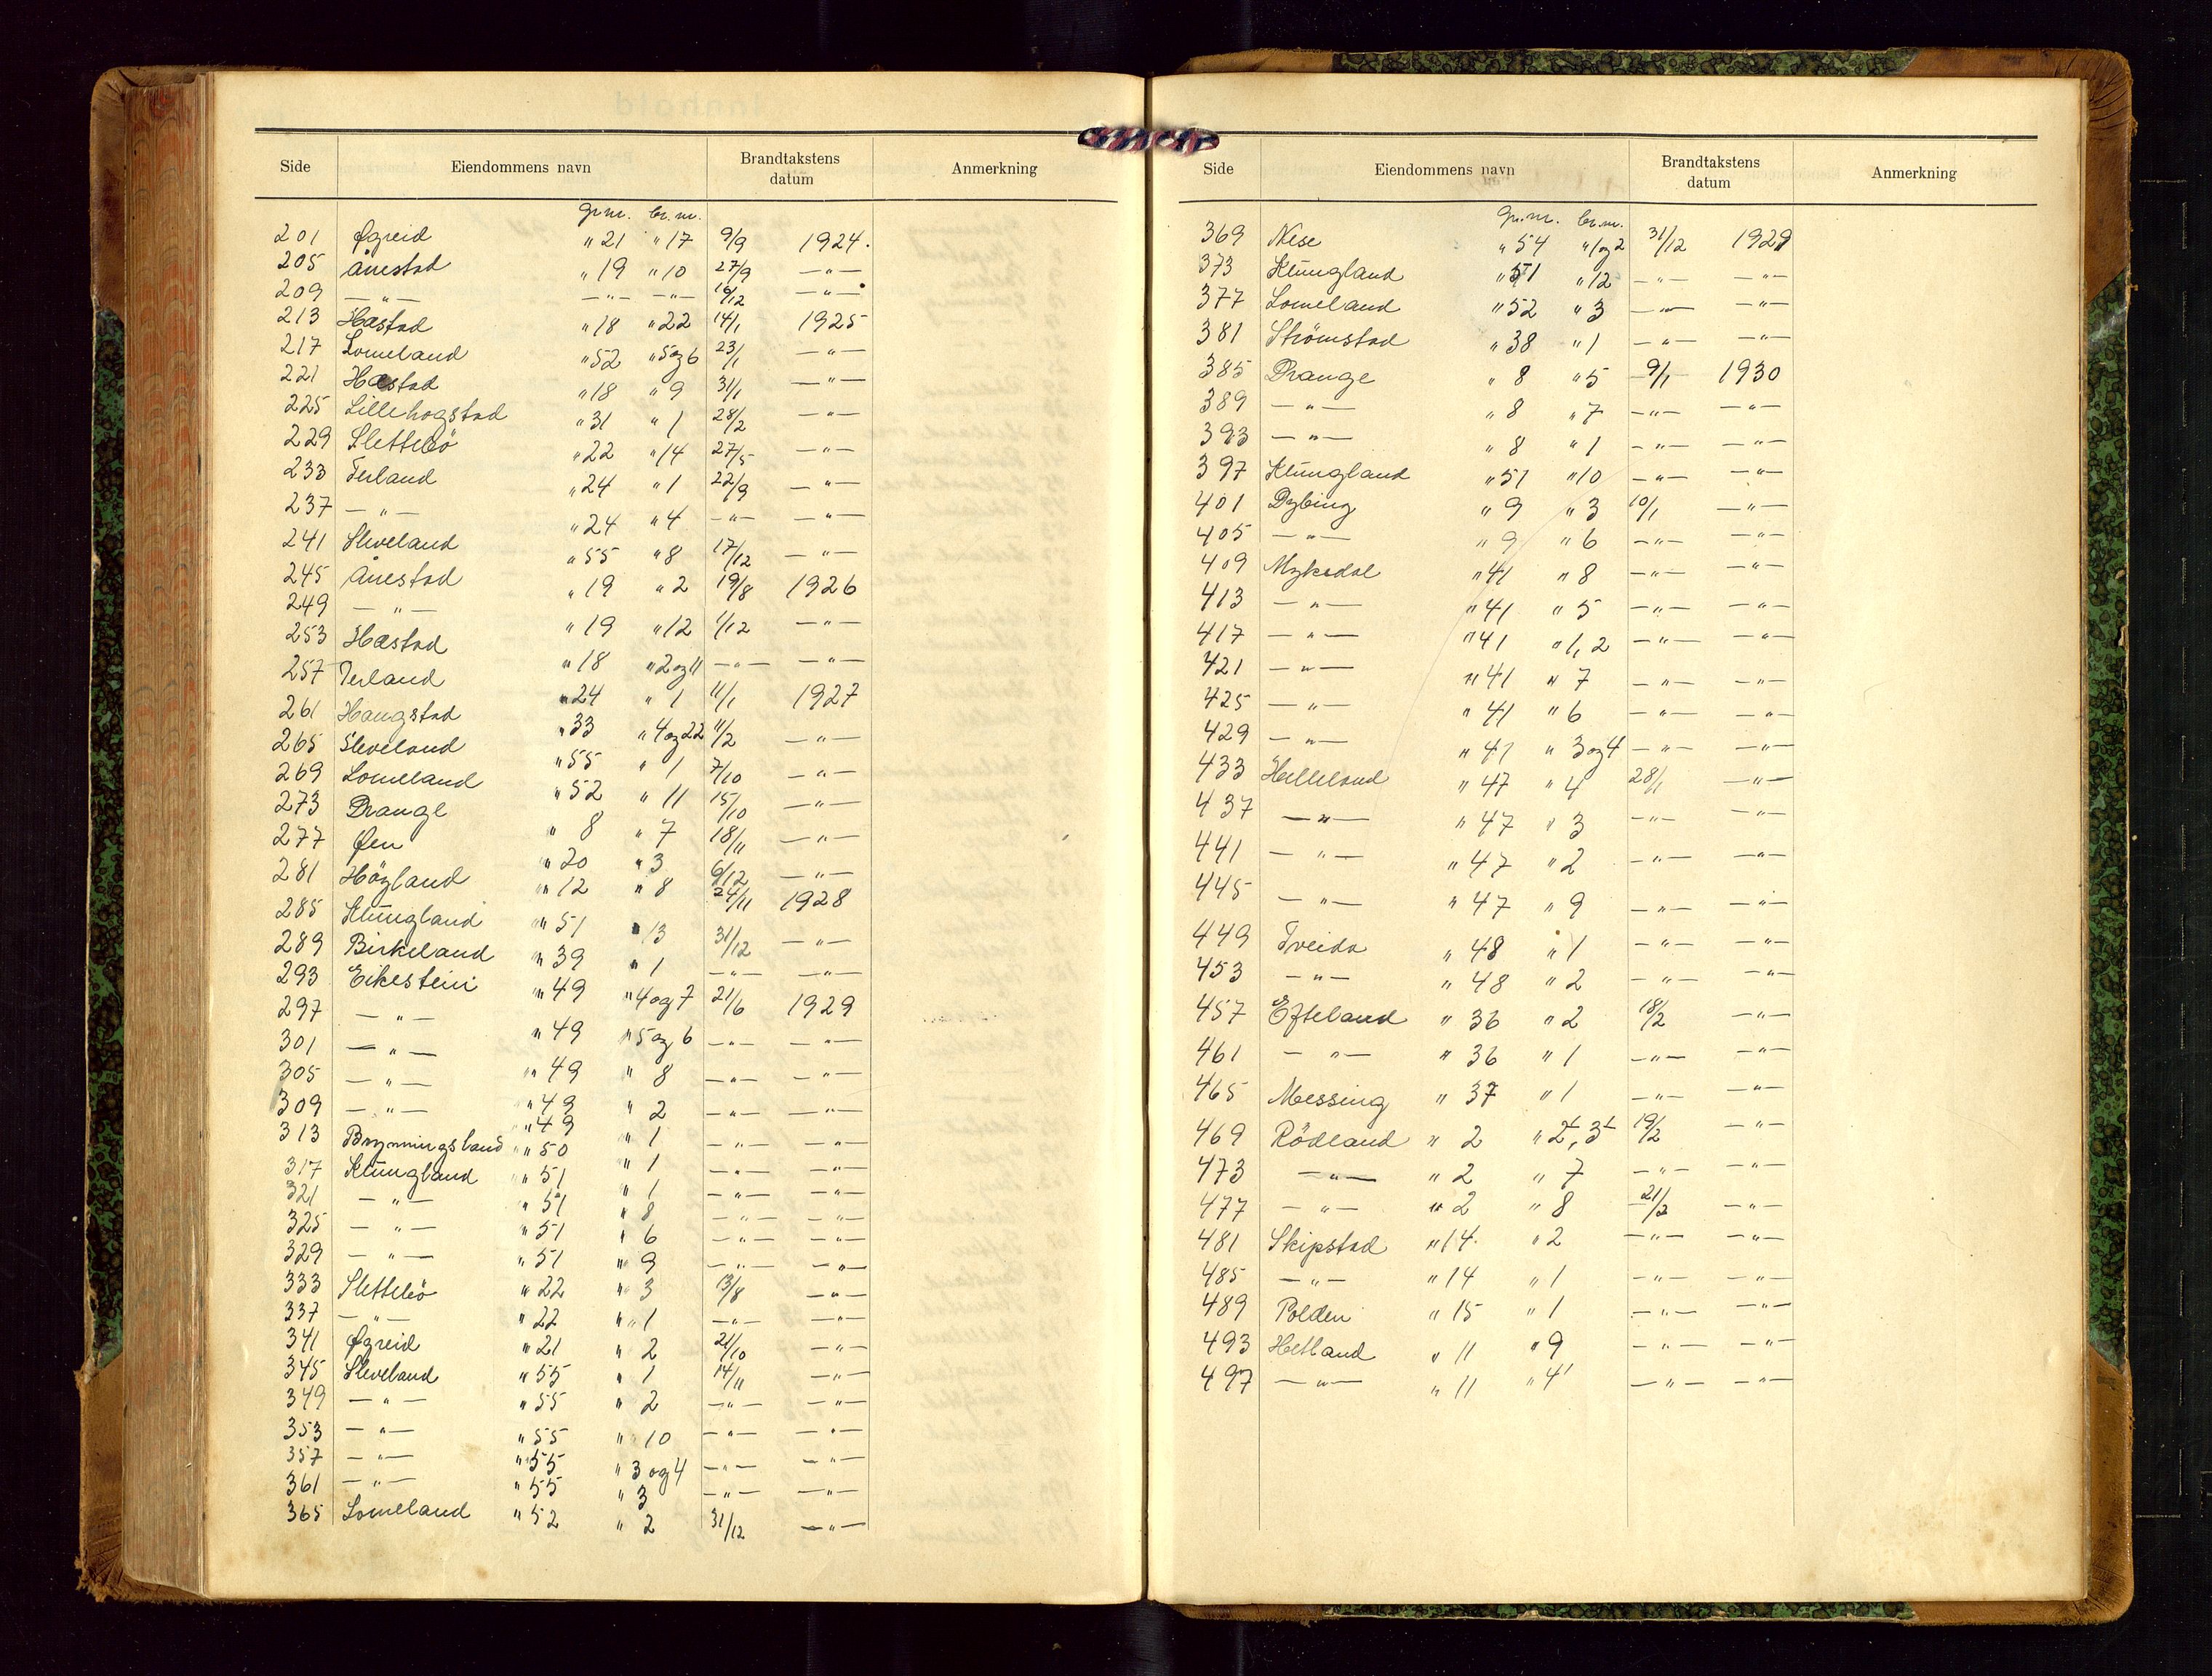 Side Eiendommens navn Brandtakstens datum Anmerkning
gr.nr. br.nr.
201 Øgreid " 21 " 17 9/9 1924.
205 Ånestad " 19 " 10 27/9 — " —
209 — " — — " — — " — 16/12 — " —
213 Hæstad " 18 " 22 14/1 1925
217 Lomeland " 52 " 5og6 23/1 — " —
221 Hæstad " 18 " 9 31/1 — " —
225 Lillehogstad " 31 " 1 28/2 — " —
229 Slettebö " 22 " 14 27/5 — " —
233 Terland " 24 " 1 22/9 — " —
237 — " — " 24 " 4 — " — — " —
241 Sleveland " 55 " 8 17/12 — " —
245 Ånestad " 19 " 2 19/8 1926
249 — " — " 19 " 12 1/12 — " —
253 Hæstad " 18 " 2og11 — " — — " —
257 Terland " 24 " 1 11/1 1927
261 Haugstad " 33 " 4og22 11/2 — " —
265 Sleveland " 55 " 1 7/10 — " —
269 Lomeland " 52 " 11 15/10 — " —
273 Drange " 8 " 7 18/11 — " —
277 Øen " 20 " 3 6/12 — " —
281 Högland " 12 " 8 24/11 1928
285 Klungland " 51 " 13 31/12 — " —
289 Birkeland " 39 " 1 — " — — " —
293 Eikestein " 49 " 4og7 21/6 1929
297 — " — " 49 " 5og6 — " — — " —
301 — " — " 49 " 8 — " — — " —
305 — " — " 49 " 2 — " — — " —
309 — " — " 49 " 1 — " — — " —
313 Brynningsland " 50 " 1 — " — — " —
317 Klungland " 51 " 1 — " — — " —
321 — " — " 51 " 8 — " — — " —
325 — " — " 51 " 6 — " — — " —
329 — " — " 51 " 9 — " — — " —
333 Slettebö " 22 " 3 13/8 — " —
337 — " — " 22 " 1 — " — — " —
341 Øgreid " 21 " 2 21/10 — " —
345 Sleveland " 55 " 1 14/11 — " —
349 — " — " 55 " 2 — " — — " —
353 — " — " 55 " 10 — " — — " —
357 — " — " 55 " 3 og 4 — " — — " —
361 — " — " 55 " 3 — " — — " —
365 Lomeland " 52 " 2 31/12 — " —
Side Eiendommens navn Brandtakstens datum Anmerkning
gr.nr. br.nr.
369 Nese " 54 " 1og2 31/12 1929
373 Klungland " 51 " 12 — " — — " —
377 Lomeland " 52 " 3 — " — — " —
381 Strömstad " 38 " 1 — " — — " —
385 Drange " 8 " 5 9/1 1930
389 — " — " 8 " 7 — " — — " —
393 — " — " 8 " 1 — " — — " —
397 Klungland " 51 " 10 — " — — " —
401 Dybing " 9 " 3 10/1 — " —
405 — " — " 9 " 6 — " — — " —
409 Myksdal " 41 " 8 — " — — " —
413 — " — " 41 " 5 — " — — " —
417 — " — " 41 " 1, 2 — " — — " —
421 — " — " 41 " 7 — " — — " —
425 — " — " 41 " 6 — " — — " —
429 — " — " 41 " 3og4 — " — — " —
433 Helleland " 47 " 4 28/1 — " —
437 — " — " 47 " 3 — " — — " —
441 — " — " 47 " 2 — " — — " —
445 — " — " 47 " 9 — " — — " —
449 Tveida " 48 " 1 — " — — " —
453 — " — " 48 " 2 — " — — " —
457 Efteland " 36 " 2 18/2 — " —
461 — " — " 36 " 1 — " — — " —
465 Messing " 37 " 1 — " — — " —
469 Rödland " 2 " 2, 3 19/2 — " —
473 — " — " 2 " 7 — " — — " —
477 — " — " 2 " 8 21/2 — " —
481 Skipstad " 14 " 2 — " — — " —
485 — " — " 14 " 1 — " — — " —
489 Polden " 15 " 1 — " — — " —
493 Hetland " 11 " 9 — " — — " —
497 — " — " 11 " 4 — " — — " —